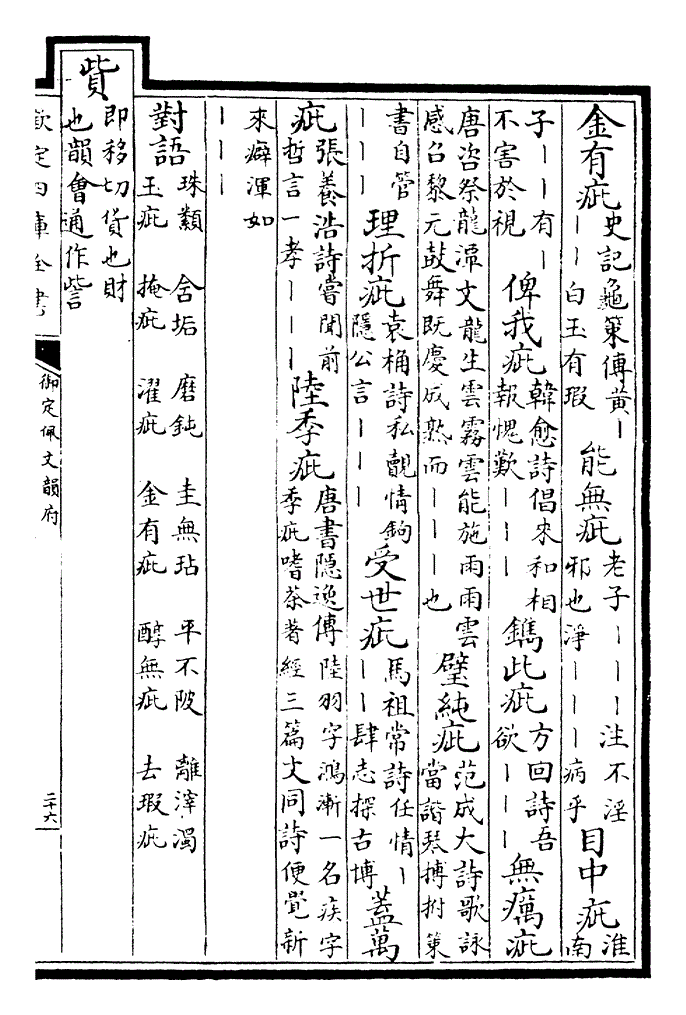 金有疵
史記龜策傳黃丨
丨丨白玉有瑕
能無疵
老子丨丨丨注不淫
邪也淨丨丨丨病乎
目中疵
淮
南
子丨丨有丨
不害於視
俾我疵
韓愈詩倡來和相
報愧歎丨丨丨
鐫此疵
方回詩吾
欲丨丨丨
無癘疵
唐咨祭龍潭文龍生雲霧雲能施雨雨雲
感召黎元鼓舞既慶成熟而丨丨丨也
璧純疵
范成大詩歌詠
當諧琴搏拊策
書自管
丨丨丨
理折疵
袁桷詩私覿情鉤
隱公言丨丨丨
受世疵
馬祖常詩任情丨
丨丨肆志探古博
蓋萬
疵
張養浩詩嘗聞前
哲言一孝丨丨丨
陸季疵
唐書隱逸傳陸羽字鴻漸一名疾字
季疵嗜茶著經三篇文同詩便覺新
來癖渾如
丨丨丨
對語
珠纇 含垢 磨鈍 圭無玷 平不陂 離滓濁
玉疵 掩疵 濯疵 金有疵 醇無疵 去瑕疵
貲
即移切貨也財
也韻會通作訾
欽定四庫全書
御定佩文韻府
二十六